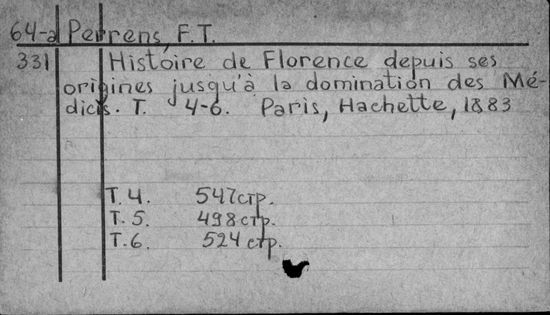 64-а Perrens, F.T.
331 Histoire de Florence depuis ses
origines jusqu'à la domination des Mé-
dicis. T. 4-6. Paris, Hachette, 1883
T. 4. 547 стр.
T. 5. 498 стр.
T. 6. 524 стр.